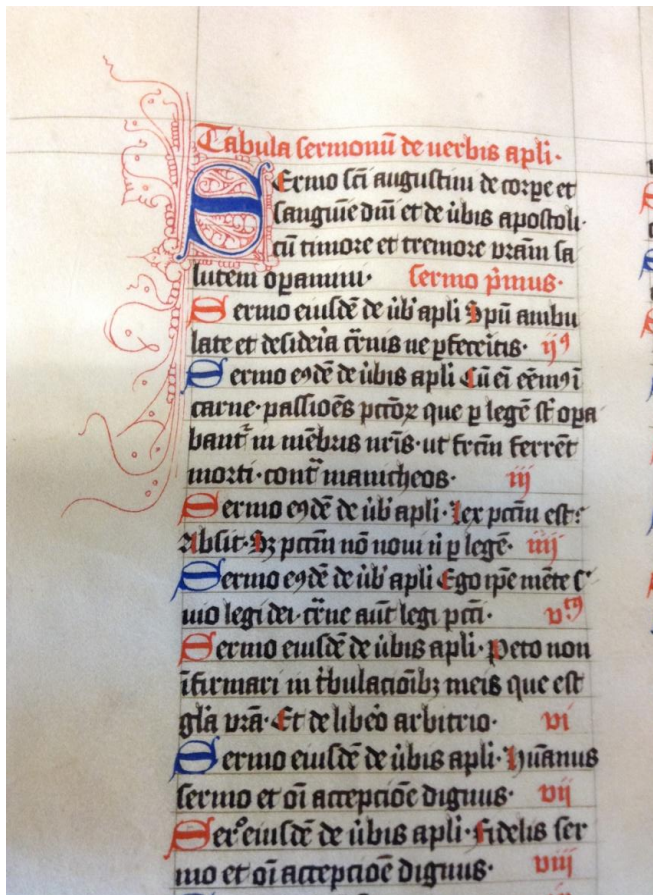 Tabula sermonū de uerbis apli·
Sermo sc̄i augustini de corpe et
sanguīe dn̄i et de ůbis apostoli·
cū timore et tremore vrām sa
lutem opamini· sermo pͥmus·
Sermo eiusdē de ůb' apli Spū ambu
late et desideria c̄rnis ne pfeceritis· ijꝰ
Sermo eꝯdē de ůbis apli Cū eī eēmꝯ ī
carne· passioēs pctōꝝ que p legē st̄ opa
bant᷑ in mēbris nrīs· ut frctū ferrēt
morti· cont᷑ manicheos· iij
Sermo eꝯdē de ůb' apli· Lex pctm̄ est:
Absit· Sꝫ pctm̄ nō noui n̄ p legē· iiij
Sermo eꝯdē de ůb' apli Ego ip̄e mēte s'
uio legi dei· c̄rne aut̄ legi pcti· v·tꝰ
Sermo eiusdē de ůbis apli· Peto non
īfirmari in tͥbulacioībꝫ meis que est
glā vrā· Et de libeͦo arbitrio· vi
Sermo eiusdē de ůbis apli· Hūanus
sermo et oī accepcioē dignus· vij
Serͦ eiusdē de ůbis apli· Fidelis ser
mo et oī accepcioē dignus· viij